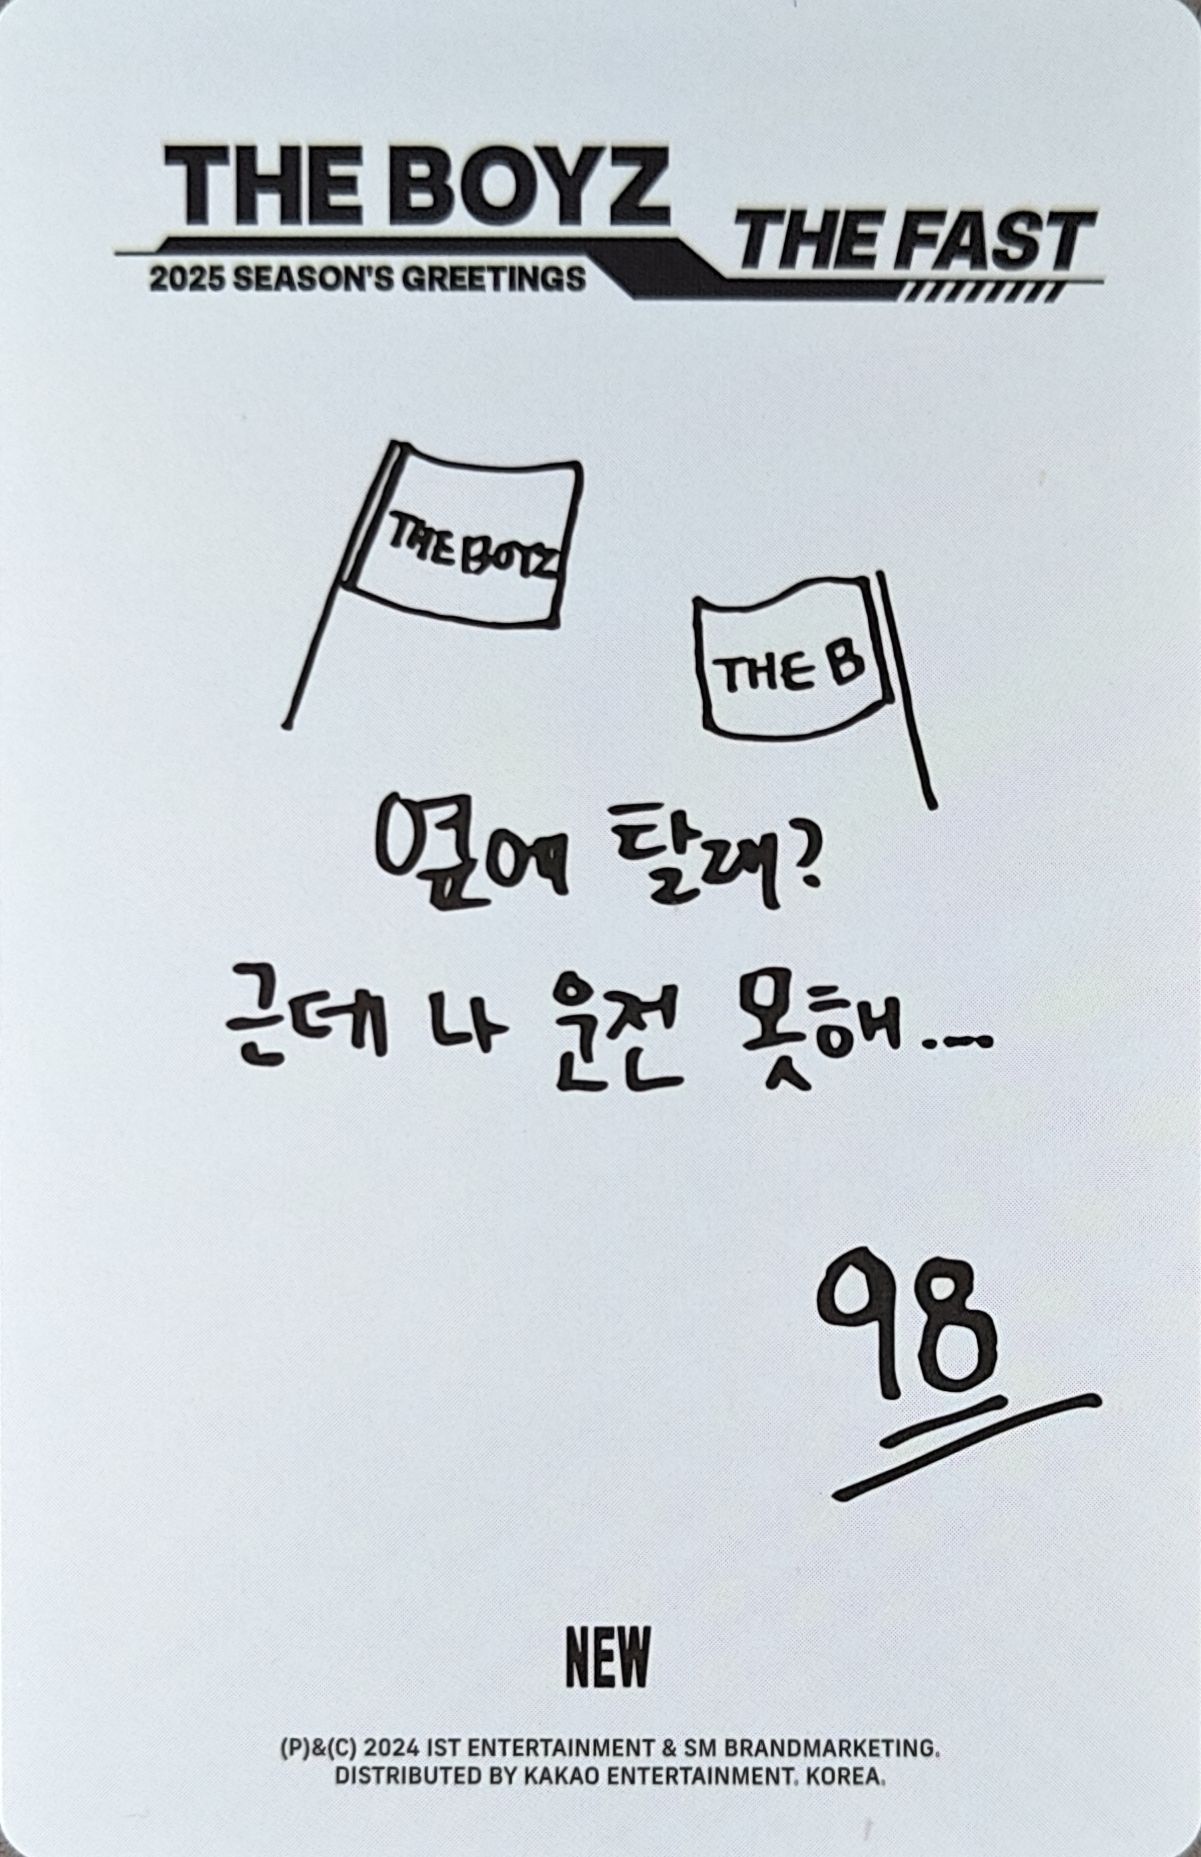 THE BOYZ
THE FAST
2025 SEASON'S GREETINGS
THE BOYZ
THE B
옆에 탈래?
근데 나 운전 못해....
98
NEW
(P)&(C) 2024 IST ENTERTAINMENT & SM BRANDMARKETING.
DISTRIBUTED BY KAKAO ENTERTAINMENT. KOREA.